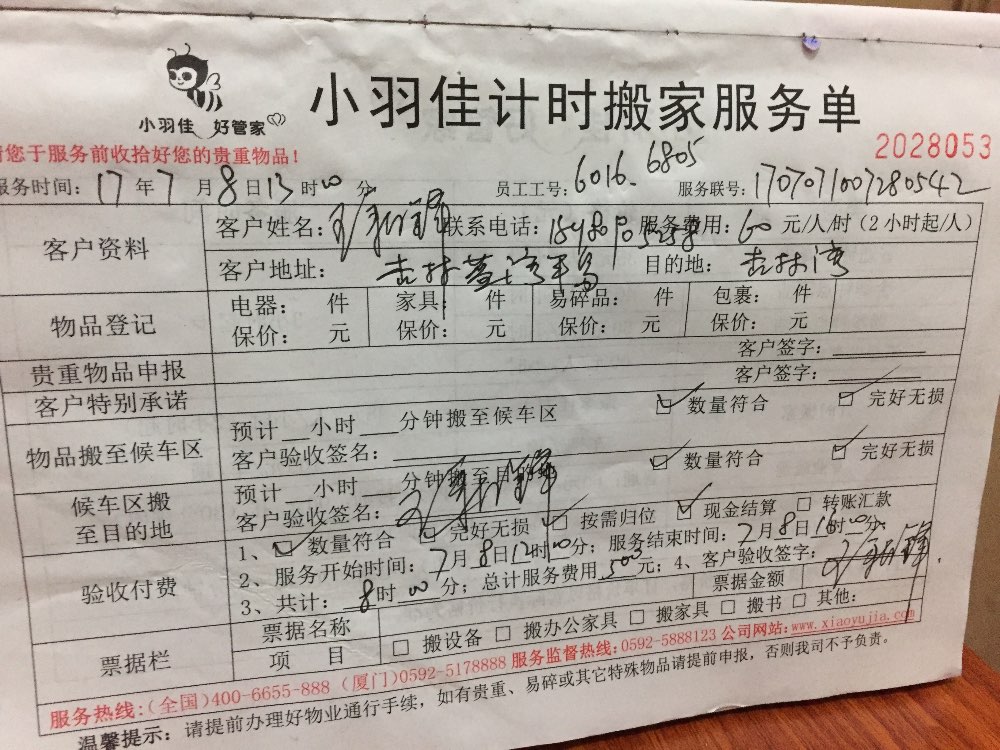 小羽佳 好管家
小羽佳计时搬家服务单
2028053
请您于服务前收拾好您的贵重物品!
服务时间: 17 年 7 月 8 日 13 时 00 分 员工工号: 6016. 6805 服务联号: 1707071007280542
客户资料
客户姓名: 联系电话: 服务费用: 60 元/人/时 (2 小时起/人)
客户地址: 吉林 目的地: 吉林湾
物品登记
电器: 件 家具: 件 易碎品: 件 包裹: 件
保价: 元 保价: 元 保价: 元 保价: 元
贵重物品申报 客户签字:
客户特别承诺 客户签字:
物品搬至候车区
预计__小时___分钟搬至候车区 ☑ 数量符合 ☑ 完好无损
客户验收签名:
候车区搬至目的地
预计__小时___分钟搬至目的地 ☑ 数量符合 ☑ 完好无损
客户验收签名:
验收付费
1、☑ 数量符合 ☑ 完好无损 ☑ 按需归位 ☑ 现金结算 □ 转账汇款
2、服务开始时间: 7月8日12时00分; 服务结束时间: 7月8日16时00分;
3、共计: 8时00分; 总计服务费用 元; 4、客户验收签字:
票据栏
票据名称 票据金额
项 目 □ 搬设备 □ 搬办公家具 □ 搬家具 □ 搬书 □ 其他:
服务热线:(全国)400-6655-888 (厦门)0592-5178888 服务监督热线:0592-5888123 公司网站:www.xiaoyujia.com
温馨提示: 请提前办理好物业通行手续, 如有贵重、易碎或其它特殊物品请提前申报, 否则我司不予负责。